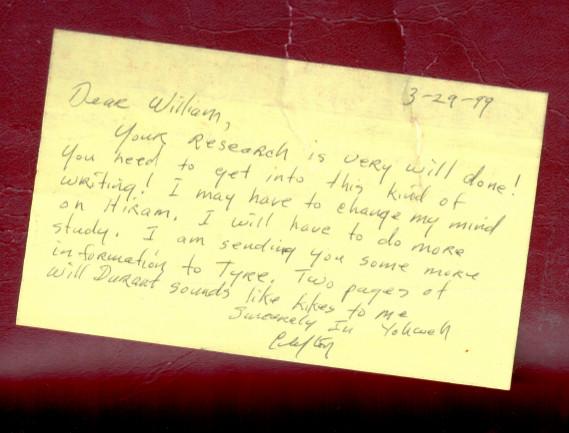 3-29-99
Dear William,
Your Research is very will done!
You need to get into this kind of
writing! I may have to change my mind
on Hiram. I will have to do more
study. I am sending you some more
information to Tyre. Two pages of
Will Durant sounds like kikes to me
Sincerely In Yahweh